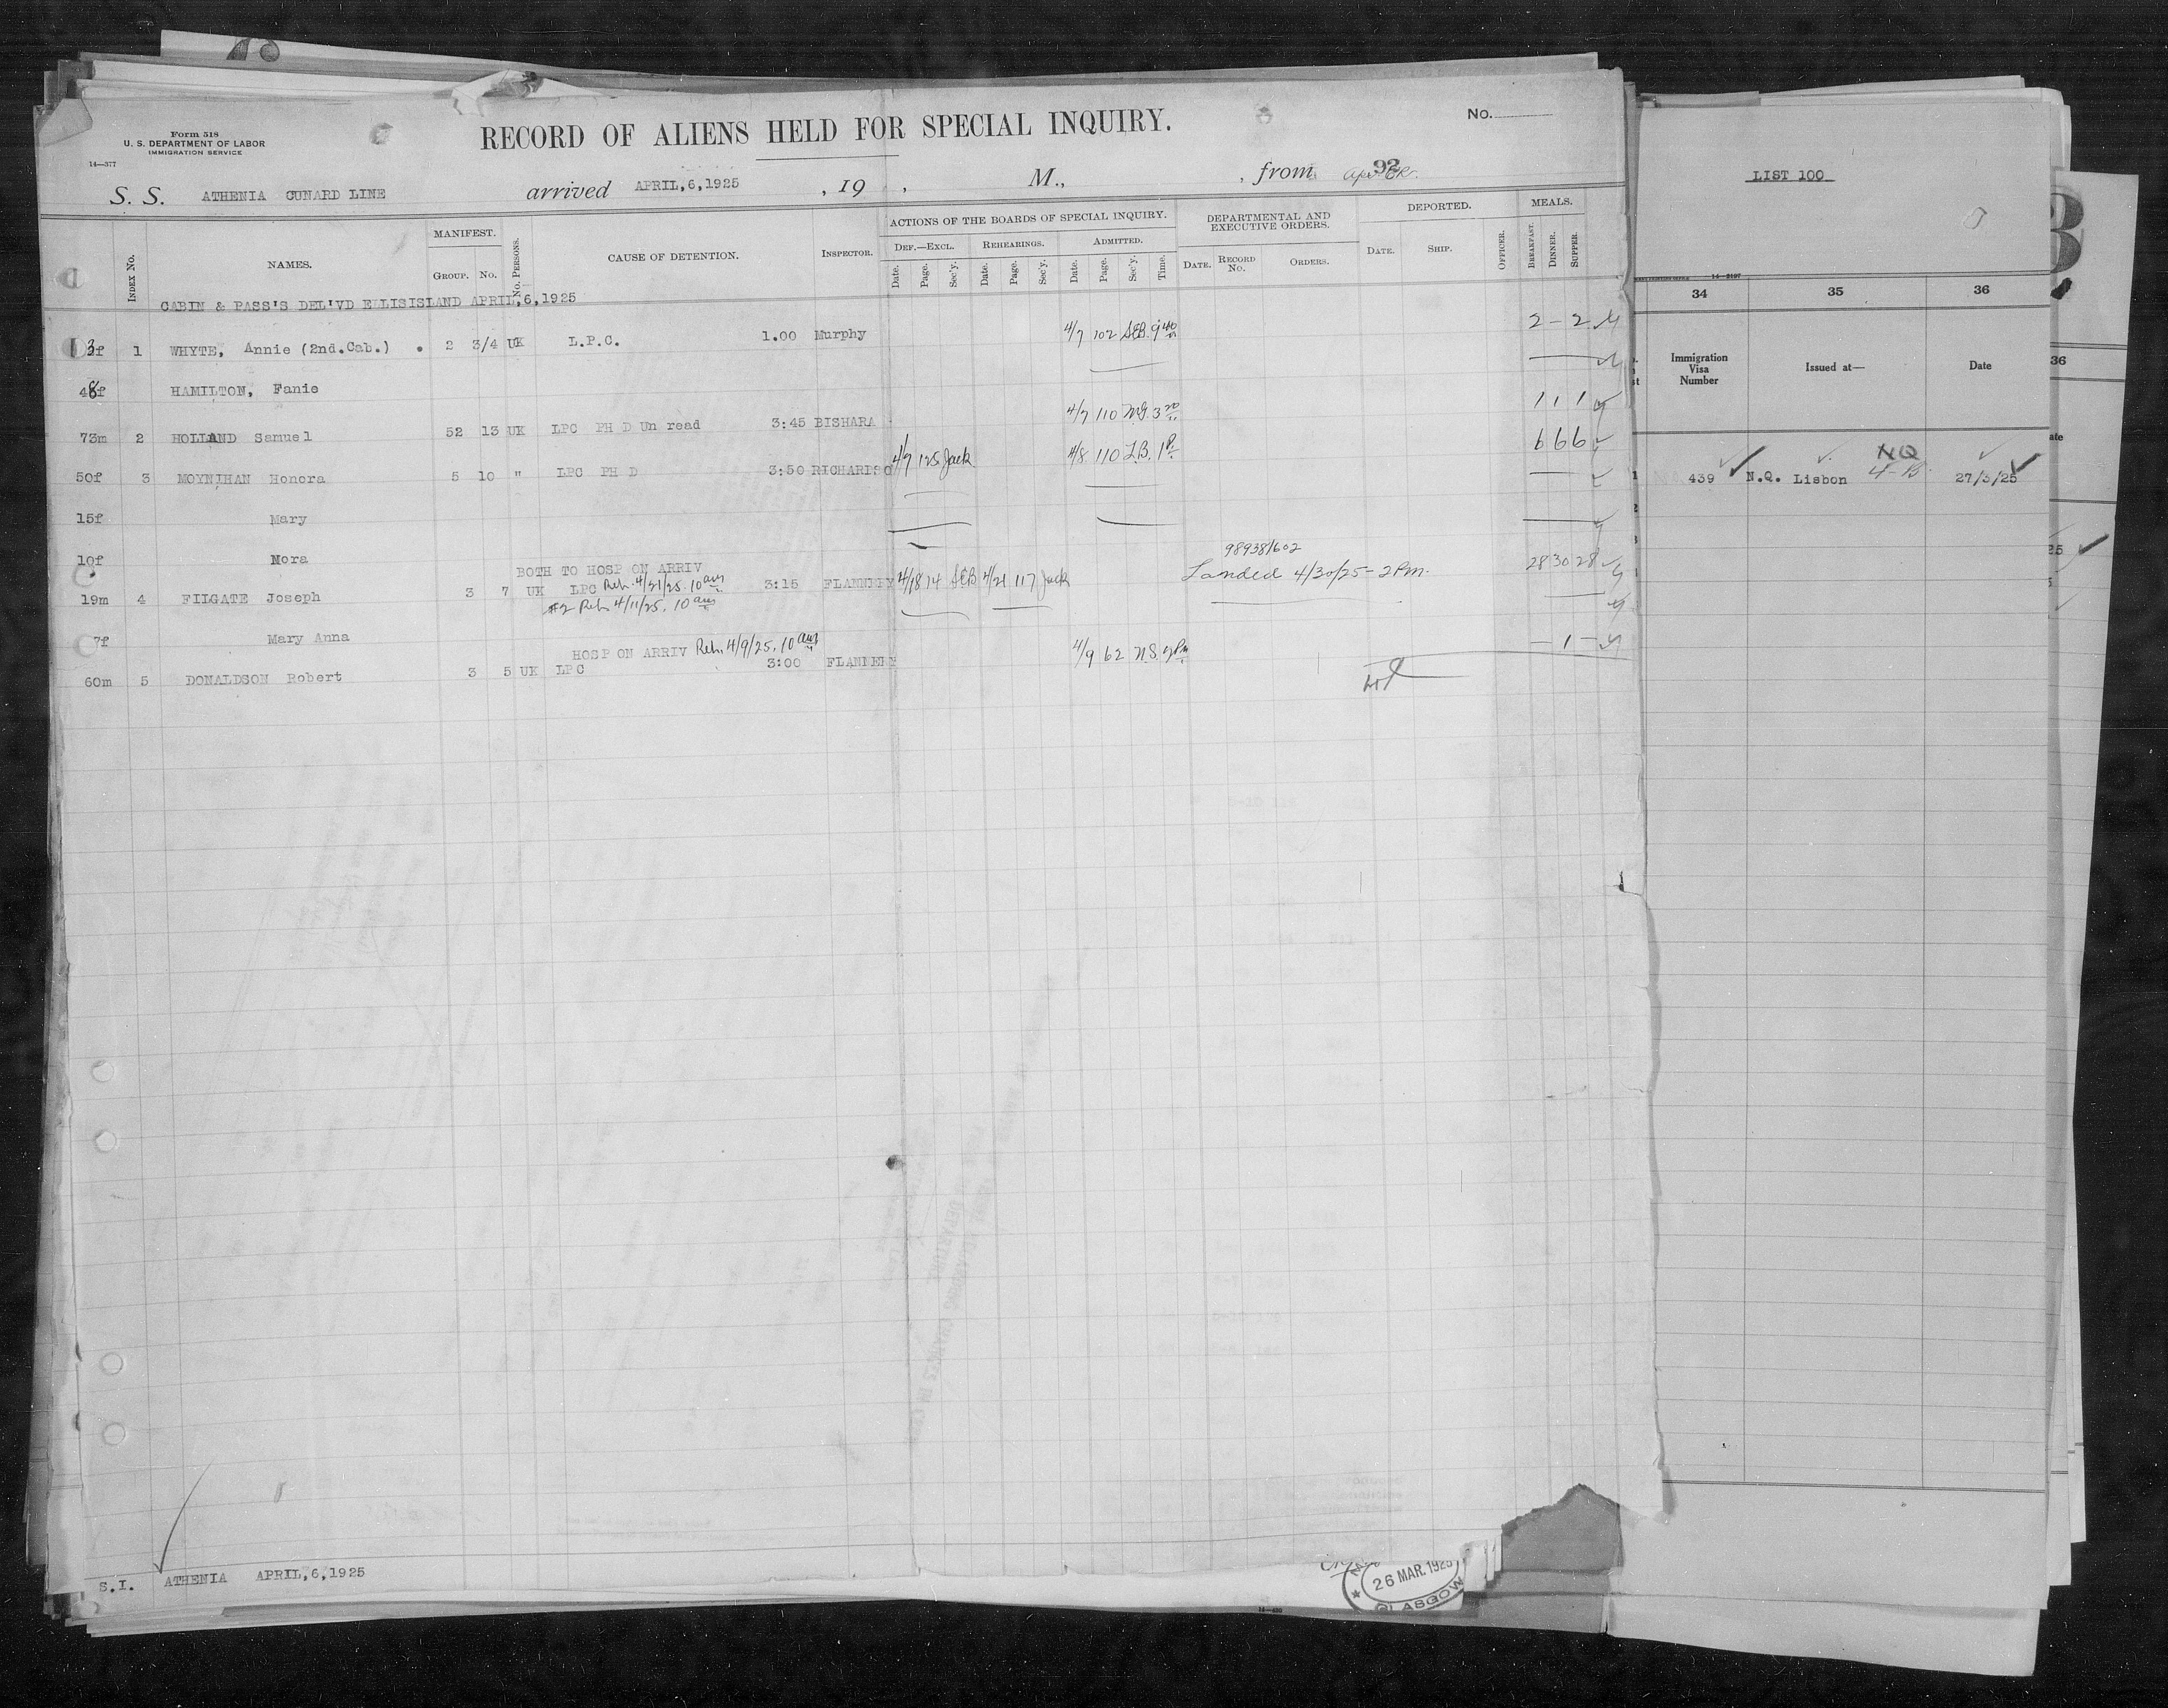 Form 518
U. S. DEPARTMENT OF LABOR
IMMIGRATION SERVICE
14—377
RECORD OF ALIENS HELD FOR SPECIAL INQUIRY.
No.
S. S. ATHENIA CUNARD LINE arrived APRIL,6,1925 , 19 , M., , from
93
INDEX No.
NAMES.
MANIFEST.
GROUP. No.
No. PERSONS.
CAUSE OF DETENTION.
INSPECTOR.
ACTIONS OF THE BOARDS OF SPECIAL INQUIRY.
DEF.—EXCL. REHEARINGS. ADMITTED.
Date. Page. Sec'y. Date. Page. Sec'y. Date. Page. Sec'y. Time.
DEPARTMENTAL AND EXECUTIVE ORDERS.
DATE. RECORD No. ORDERS.
DEPORTED.
DATE. SHIP. OFFICER.
MEALS.
BREAKFAST. DINNER. SUPPER.
CABIN & PASS'S DEL'VD ELLISISLAND APRIL,6,1925
1 WHYTE, Annie (2nd.Cab.) 2 3/4 UK L.P.C. 1.00 Murphy 4/7 102 SEB. 9 40 2 - 2
48f HAMILTON, Fanie
73m 2 HOLLAND Samuel 52 13 UK LPC PH D Un read 3:45 BISHARA 4/7 110 3 20 1 1 1
50f 3 MOYNIHAN Honora 5 10 " LPC PH D 3:50 RICHARDSO 4/7 125 Jack 4/8 110 L.B. 1 P. 6 6 6
15f Mary
10f Nora
BOTH TO HOSP ON ARRIV
19m 4 FILGATE Joseph 3 7 UK LPC Reh. 4/21/25. 10 am 3:15 FLANNERY 4/18 14 SEB 4/21 117 Jack 98938/602 Landed 4/30/25 - 2 PM. 28 30 28
#2 Reh 4/11/25, 10 am
7f Mary Anna
HOSP ON ARRIV Reh. 4/9/25, 10 am
60m 5 DONALDSON Robert 3 5 UK LPC 3:00 FLANNERY 4/9 62 N.S. 2 PM - 1 -
S.I. ATHENIA APRIL,6,1925
26 MAR. 1925
GLASGOW
LIST 100
14—3197
34 35 36
Immigration Visa Number
Issued at—
Date
439 N.Q. Lisbon NQ 27/3/25
36